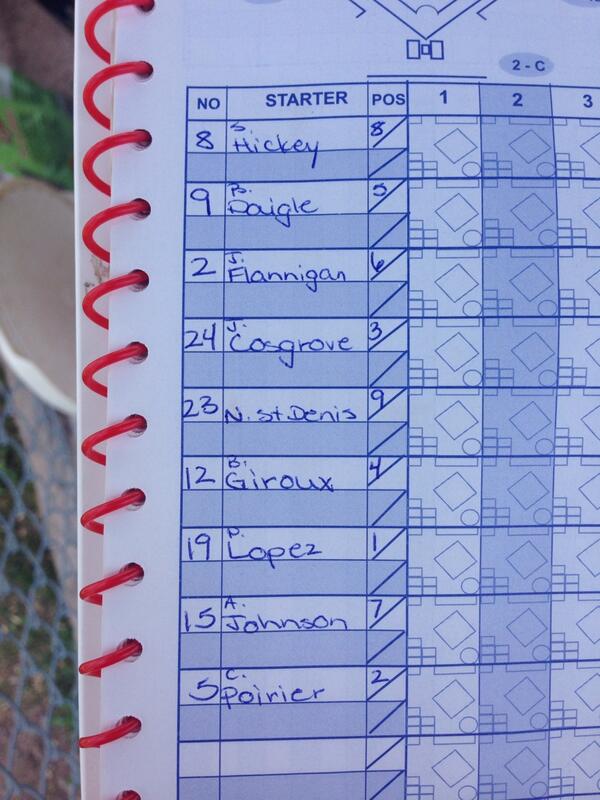 2 - C
NO STARTER POS 1 2 3
8 S. Hickey 8
9 B. Daigle 5
2 J. Flannigan 6
24 J. Cosgrove 3
23 N. St. Denis 9
12 B. Giroux 4
19 P. Lopez 1
15 A. Johnson 7
5 C. Poirier 2